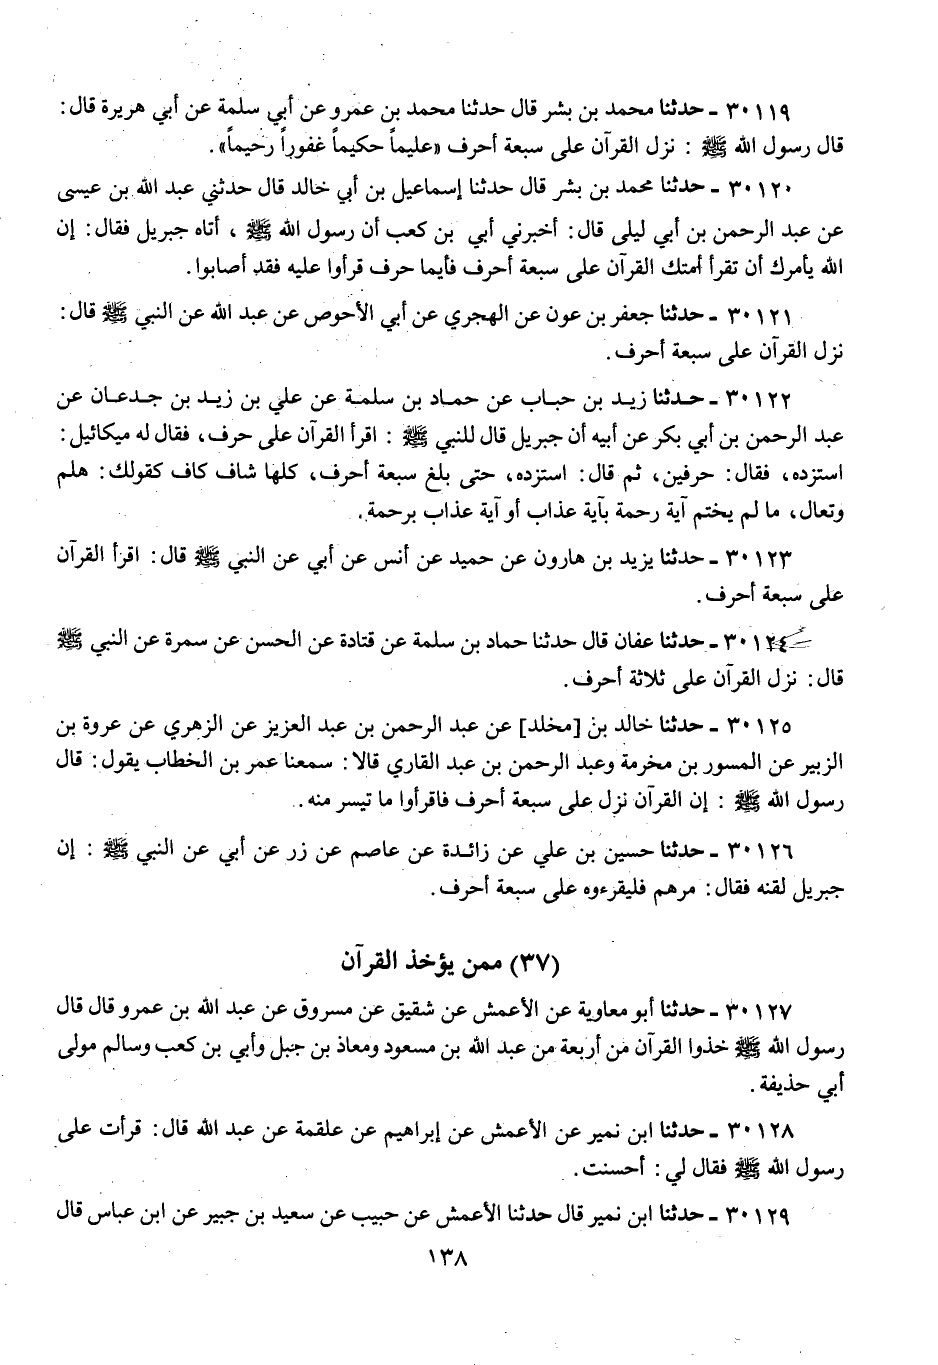 ٣٠١١٩ ـ حدثنا محمد بن بشر قال حدثنا محمد بن عمرو عن أبي سلمة عن أبي هريرة قال:
قال رسول الله ﷺ : نزل القرآن على سبعة أحرف «عليماً حكيماً غفوراً رحيماً».
٣٠١٢٠ ـ حدثنا محمد بن بشر قال حدثنا إسماعيل بن أبي خالد قال حدثني عبد الله بن عيسى
عن عبد الرحمن بن أبي ليلى قال: أخبرني أبي بن كعب أن رسول الله ﷺ ، أتاه جبريل فقال: إن
الله يأمرك أن تقرأ أمتك القرآن على سبعة أحرف فأيما حرف قرأوا عليه فقد أصابوا.
٣٠١٢١ ـ حدثنا جعفر بن عون عن الهجري عن أبي الأحوص عن عبد الله عن النبي ﷺ قال:
نزل القرآن على سبعة أحرف.
٣٠١٢٢ ـ حدثنا زيد بن حباب عن حماد بن سلمة عن علي بن زيد بن جدعان عن
عبد الرحمن بن أبي بكر عن أبيه أن جبريل قال للنبي ﷺ : اقرأ القرآن على حرف، فقال له ميكائيل:
استزده، فقال: حرفين، ثم قال: استزده، حتى بلغ سبعة أحرف، كلها شاف كاف كقولك: هلم
وتعال، ما لم يختم آية رحمة بآية عذاب أو آية عذاب برحمة.
٣٠١٢٣ ـ حدثنا يزيد بن هارون عن حميد عن أنس عن أبي عن النبي ﷺ قال: اقرأ القرآن
على سبعة أحرف.
٣٠١٢٤ ـ حدثنا عفان قال حدثنا حماد بن سلمة عن قتادة عن الحسن عن سمرة عن النبي ﷺ
قال: نزل القرآن على ثلاثة أحرف.
٣٠١٢٥ ـ حدثنا خالد بن [مخلد] عن عبد الرحمن بن عبد العزيز عن الزهري عن عروة بن
الزبير عن المسور بن مخرمة وعبد الرحمن بن عبد القاري قالا: سمعنا عمر بن الخطاب يقول: قال
رسول الله ﷺ : إن القرآن نزل على سبعة أحرف فاقرأوا ما تيسر منه.
٣٠١٢٦ ـ حدثنا حسين بن علي عن زائدة عن عاصم عن زر عن أبي عن النبي ﷺ : إن
جبريل لقنه فقال: مرهم فليقرءوه على سبعة أحرف.
(٣٧) ممن يؤخذ القرآن
٣٠١٢٧ ـ حدثنا أبو معاوية عن الأعمش عن شقيق عن مسروق عن عبد الله بن عمرو قال قال
رسول الله ﷺ خذوا القرآن من أربعة من عبد الله بن مسعود ومعاذ بن جبل وأبي بن كعب وسالم مولى
أبي حذيفة.
٣٠١٢٨ ـ حدثنا ابن نمير عن الأعمش عن إبراهيم عن علقمة عن عبد الله قال: قرأت على
رسول الله ﷺ فقال لي: أحسنت.
٣٠١٢٩ ـ حدثنا ابن نمير قال حدثنا الأعمش عن حبيب عن سعيد بن جبير عن ابن عباس قال
١٣٨